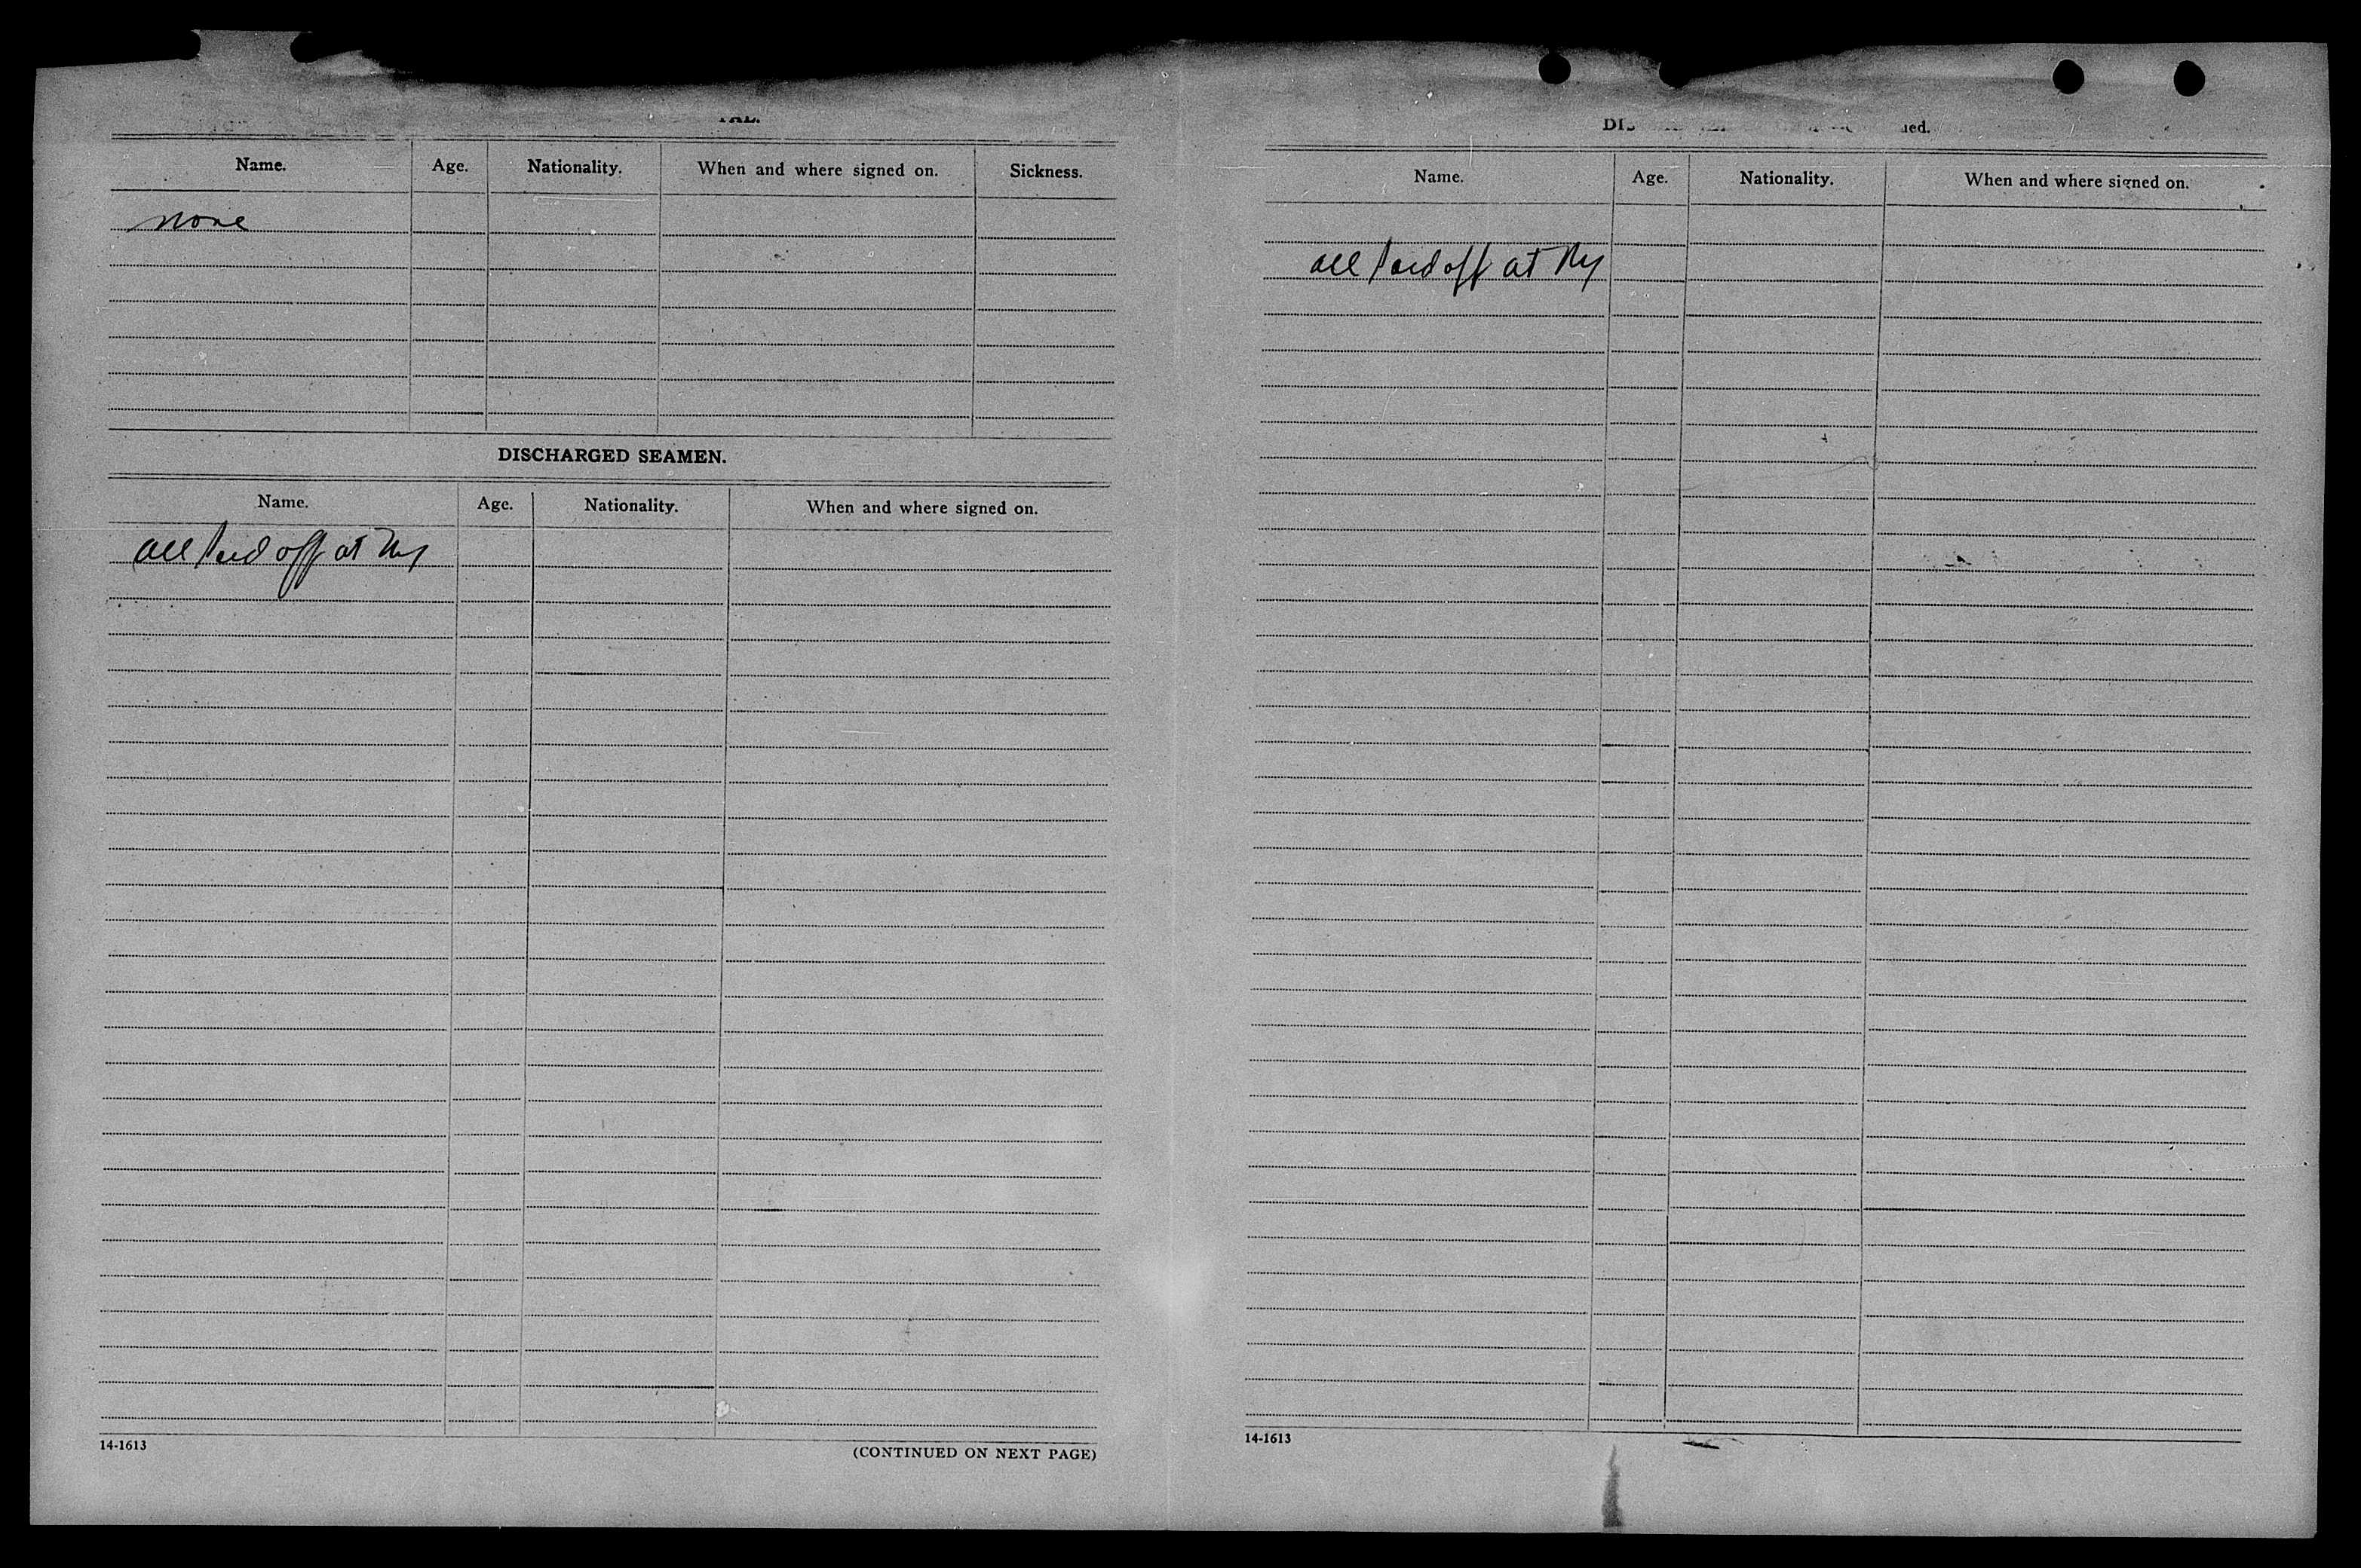 Name. Age. Nationality. When and where signed on. Sickness.
none
DISCHARGED SEAMEN.
Name. Age. Nationality. When and where signed on.
all paid off at Ny
14-1613
(CONTINUED ON NEXT PAGE)
Name. Age. Nationality. When and where signed on.
all paid off at Ny
14-1613